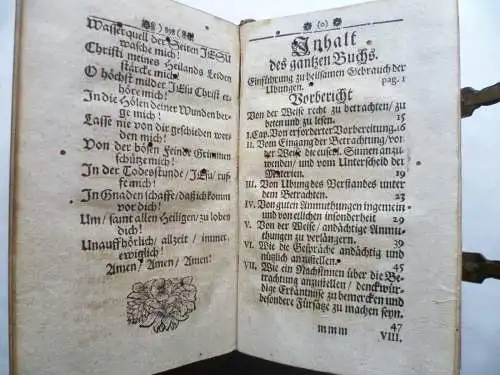 Wasserquell der Seiten JESU
wasche mich!
Christi meines Heilands Leiden
stärcke mich!
O höchst milder JEsu Christ er-
höre mich!
In die Hölen deiner Wunden ber-
ge mich!
Lasse nie von dir geschieden wer-
den mich!
Von der bösen Feinde Grimmen
schütze mich!
In der Todesstunde/ JEsu/ ruf-
fe mich!
In Gnaden schaffe/ daß ich komm
vor dich!
Um/ samt allen Heiligen/ zu loben
dich!
Unauffhörlich/ allzeit/ immer,
ewiglich!
Amen/ Amen/ Amen!
(o)
Inhalt
des gantzen Buchs.
Einführung zu heilsamen Gebrauch der
Ubungen. pag. 1
Vorbericht
Von der Weise recht zu betrachten/ zu
beten und zu lesen. 15
I. Cap. Von erforderter Vorbereitung. 16
II. Vom Eingang der Betrachtung/ vor
der Weise die eusserl. Sinnen anzu-
wenden/ und vom Unterscheid der
Materien. 19
III. Von Ubung des Verstandes unter
dem Betrachten. 23
IV. Von guten Anmuthungen ingemein
und von etlichen insonderheit 29
V. Von der Weise/ andächtige Anmu-
thungen zu verlängern. 39
VI. Wie die Gespräche andächtig und
nützlich anzustellen. 45
VII. Wie ein Nachsinnen über die Be-
trachtung anzustellen/ denckwür-
dige Erkäntnisse zu bemercken und
besondere Fürsätze zu machen seyn.
47
mmm VIII.